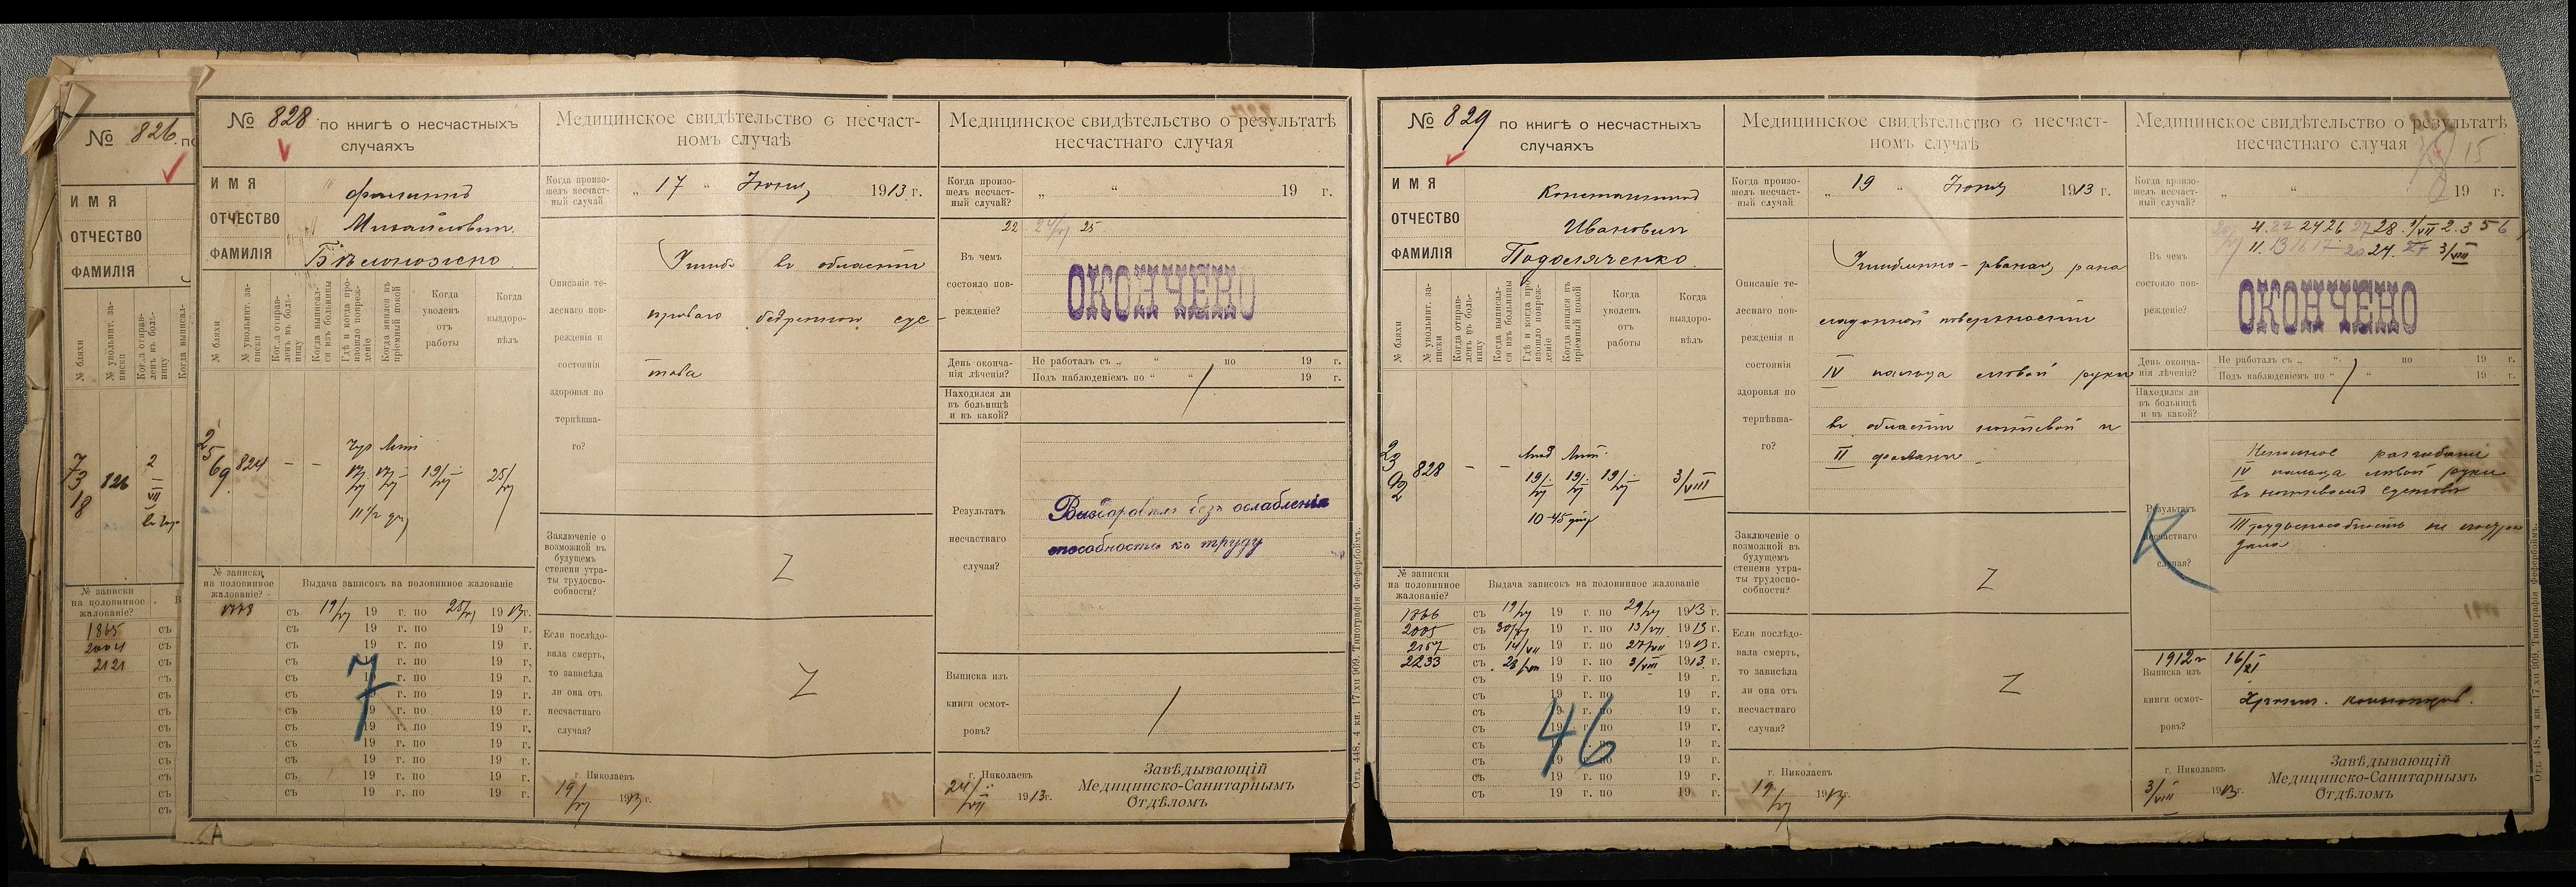 № 826 по
ИМЯ
ОТЧЕСТВО
ФАМИЛІЯ
№ бляхи
№ увольнит. записки
Когда отправленъ въ больницу
Когда выписал-
7318
126
№ записки на половинное жалованіе?
В
1865 съ
2004 съ
2121 съ
съ
съ
съ
съ
съ
съ
съ
съ
съ
№ 828 по книгѣ о несчастныхъ
случаяхъ
ИМЯ
ОТЧЕСТВО Михайловичъ
ФАМИЛІЯ
№ бляхи
№ увольнит. записки
Когда отправленъ въ больницу
Когда выписался изъ больницы
Гдѣ и когда произошло поврежденіе
Когда явился въ пріемный покой
Когда уволенъ отъ работы
Когда выздоровѣлъ
2569 824 - -
17/VI 17/VI 19/VI 25/VI
11 1/2
№ записки на половинное жалованіе?
Выдача записокъ на половинное жалованіе
1778 съ 19/VI 19 г. по 25/VI 1913 г.
съ 19 г. по 19 г.
съ 19 г. по 19 г.
съ 19 г. по 19 г.
съ 19 г. по 19 г.
съ 19 г. по 19 г.
съ 19 г. по 19 г.
съ 19 г. по 19 г.
съ 19 г. по 19 г.
съ 19 г. по 19 г.
съ 19 г. по 19 г.
съ 19 г. по 19 г.
7
Медицинское свидѣтельство о несчаст-
номъ случаѣ
Когда произо-
шелъ несчаст-
ный случай
„ 17 “ Іюня 1913 г.
Описаніе те-
леснаго пов-
режденія и
состоянія
здоровья по
терпѣвша-
го?
Ушибъ въ области
праваго бедреннаго сус-
тава
Заключеніе о
возможной въ
будущемъ
степени утра-
ты трудоспо-
собности?
Z
Если послѣдо-
вала смерть,
то зависѣла
ли она отъ
несчастнаго
случая?
Z
г. Николаевъ
19/VI 1913 г.
Медицинское свидѣтельство о результатѣ
несчастнаго случая
Когда произо-
шелъ несчаст-
ный случай?
„ “ 19 г.
22 24/VI 25
Въ чемъ
состояло пов-
режденіе?
ОКОНЧЕНО
День оконча-
нія лѣченія?
Не работалъ съ „ “ по 19 г.
Подъ наблюденіемъ по “ “ 19 г.
Находился ли
въ больницѣ
и въ какой?
Результатъ
несчастнаго
случая?
Выздоровѣлъ безъ ослабленія
способности къ труду
Выписка изъ
книги осмот-
ровъ?
г. Николаевъ
1913 г.
Завѣдывающій
Медицинско-Санитарнымъ
Отдѣломъ
Отд. 448. 4 кн. 17/XII 909. Типографія Фефербоймъ.
№ 829 по книгѣ о несчастныхъ
случаяхъ
ИМЯ Константинъ
ОТЧЕСТВО Ивановичъ
ФАМИЛІЯ Подоляченко
№ бляхи
№ увольнит. записки
Когда отправленъ въ больницу
Когда выписался изъ больницы
Гдѣ и когда произошло поврежденіе
Когда явился въ пріемный покой
Когда уволенъ отъ работы
Когда выздоровѣлъ
828 - -
19/VI 19/VI 19/VI 3/VIII
10-45
№ записки на половинное жалованіе?
Выдача записокъ на половинное жалованіе
1766 съ 19/VI 19 г. по 29/VI 1913 г.
2005 съ 30/VI 19 г. по 13/VII 1913 г.
2157 съ 14/VII 19 г. по 27/VII 1913 г.
2233 съ 28/VII 19 г. по 3/VIII 1913 г.
съ 19 г. по 19 г.
съ 19 г. по 19 г.
съ 19 г. по 19 г.
съ 19 г. по 19 г.
съ 19 г. по 19 г.
съ 19 г. по 19 г.
съ 19 г. по 19 г.
съ 19 г. по 19 г.
46
Медицинское свидѣтельство о несчаст-
номъ случаѣ
Когда произо-
шелъ несчаст-
ный случай
„ 19 “ Іюня 1913 г.
Описаніе те-
леснаго пов-
режденія и
состоянія
здоровья по
терпѣвша-
го?
Ушибленно-рваная рана
ладонной поверхности
IV пальца лѣвой руки
въ области ногтевой и
II фаланги
Заключеніе о
возможной въ
будущемъ
степени утра-
ты трудоспо-
собности?
Z
Если послѣдо-
вала смерть,
то зависѣла
ли она отъ
несчастнаго
случая?
Z
г. Николаевъ
19/VI 1913 г.
Медицинское свидѣтельство о результатѣ
несчастнаго случая
15
Когда произо-
шелъ несчаст-
ный случай?
„ “ 19 г.
22 24 26 27 28 1/VII 2. 3 5 6
11. 13 20 24. 27 3/VIII
Въ чемъ
состояло пов-
режденіе?
ОКОНЧЕНО
День оконча-
нія лѣченія?
Не работалъ съ „ “ по 19 г.
Подъ наблюденіемъ по “ “ 19 г.
Находился ли
въ больницѣ
и въ какой?
Результатъ
несчастнаго
случая?
К
Неполное разгибаніе
IV пальца лѣвой руки
въ ногтевомъ суставѣ
Трудоспособность не постра-
дала
Выписка изъ
книги осмот-
ровъ?
1912 г 16/XI
Хронич. конъюнктив.
г. Николаевъ
3/VIII 1913 г.
Завѣдывающій
Медицинско-Санитарнымъ
Отдѣломъ
Отд. 448. 4 кн. 17 XII 909. Типографія Фефербоймъ.